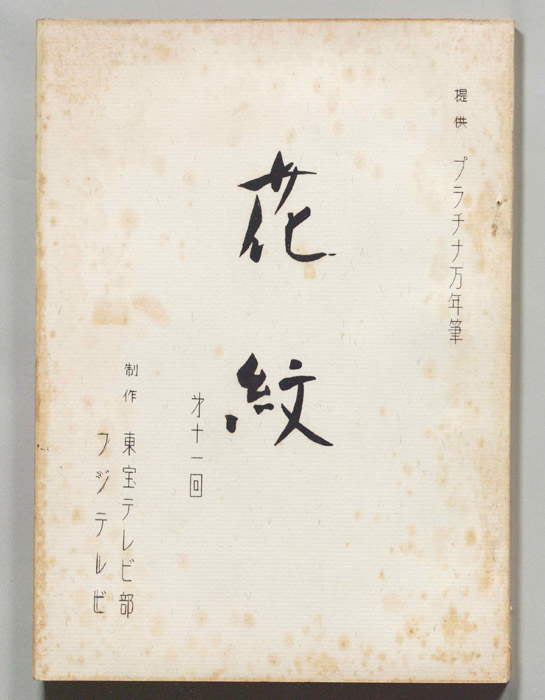 提供 プラチナ万年筆
花紋
才十一回
制作 東宝テレビ部
フジテレビ